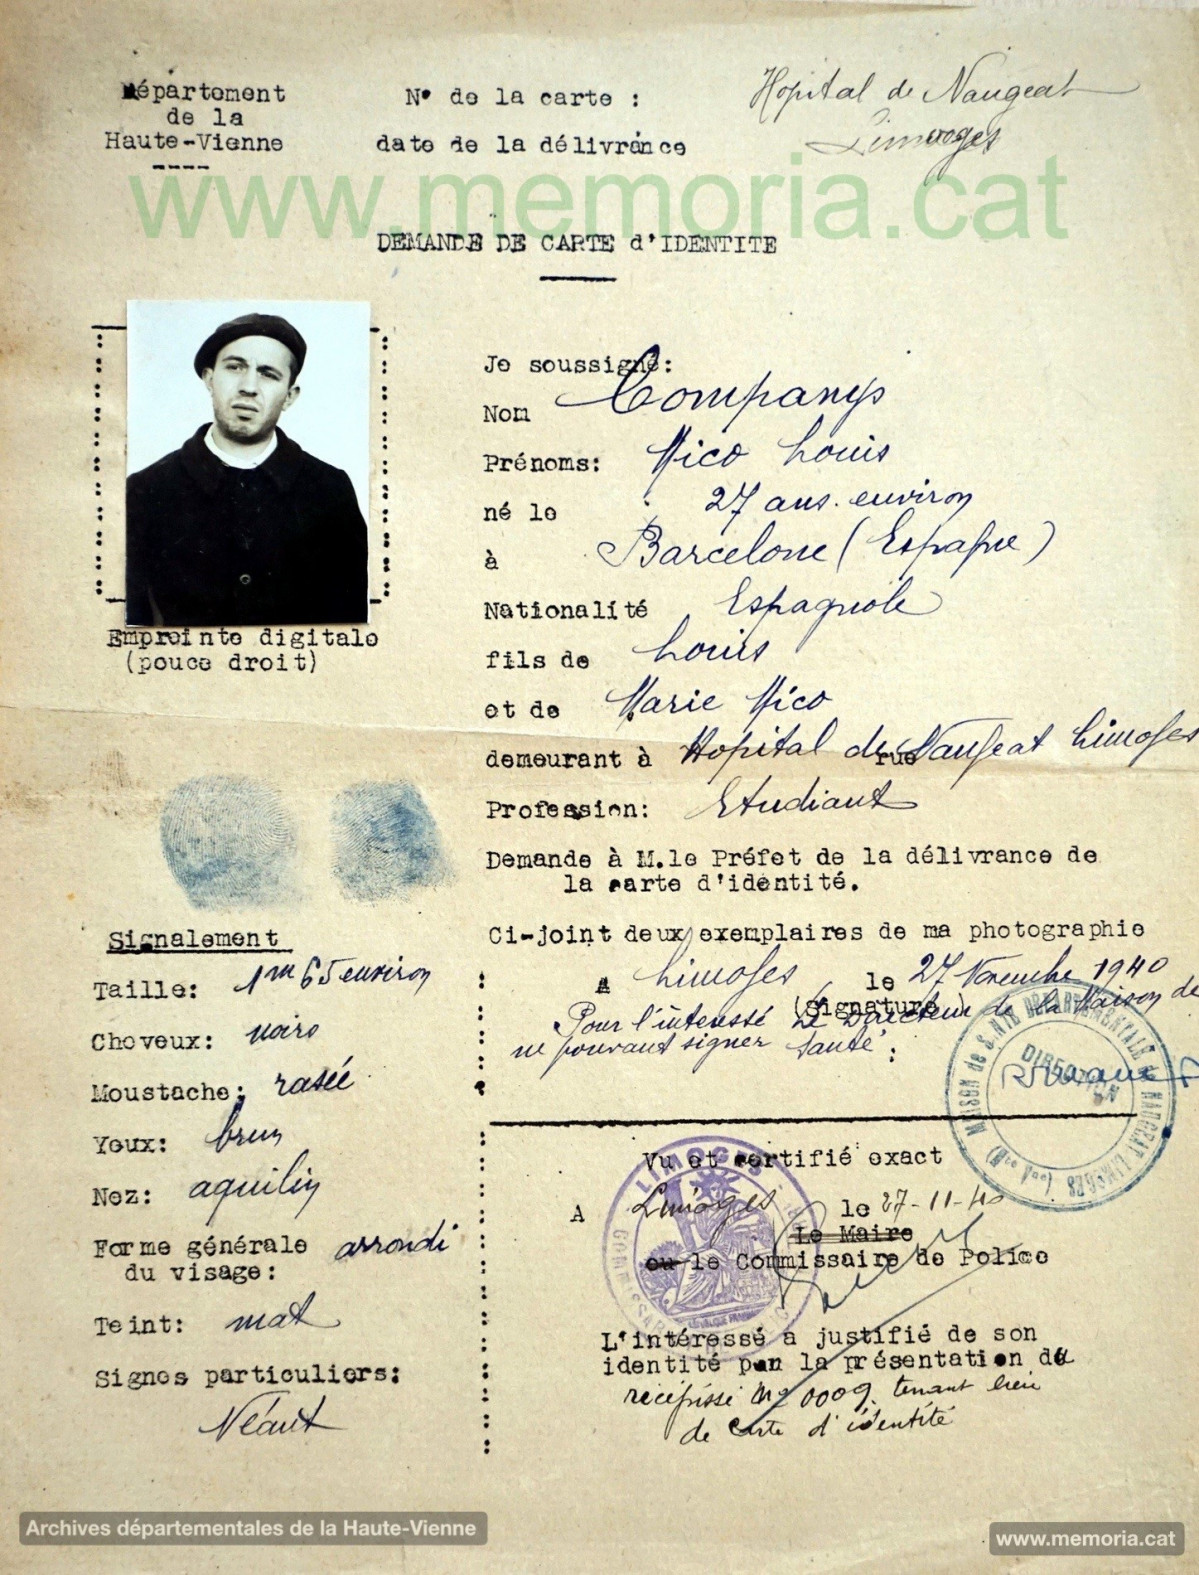 Département
de la
Haute-Vienne
N° de la carte :
date de la délivrance
Hopital de Naugeat
Limoges
www.memoria.cat
DEMANDE DE CARTE d'IDENTITE
Je soussigné:
Nom Companys
Prénoms: Mico Louis
né le 27 ans environ
à Barcelone (Espagne)
Nationalité Espagnole
fils de Louis
et de Marie Mico
demeurant à Hopital de rue Naugeat Limoges
Profession: Etudiant
Demande à M.le Préfet de la délivrance de
la carte d'identité.
Ci-joint deux exemplaires de ma photographie
A Limoges le 27 Novembre 1940
(Signature)
Pour l'intéressé Le Directeur de la Maison de
ne pouvant signer Santé :
MAISON de SANTE DEPARTEMENTALE NAUGEAT LIMOGES
DIRECTION
Empreinte digitale
(pouce droit)
Signalement
Taille: 1m 65 environ
Cheveux: noirs
Moustache: rasée
Yeux: brun
Nez: aquilin
Forme générale arrondi
du visage:
Teint: mat
Signes particuliers:
Néant
Vu et certifié exact
A Limoges le 27-11-40
Le Maire
ou le Commissaire de Police
LIMOGES
L'intéressé a justifié de son
identité par la présentation du
récépissé No 0009 tenant lieu
de carte d'identité
Archives départementales de la Haute-Vienne
www.memoria.cat